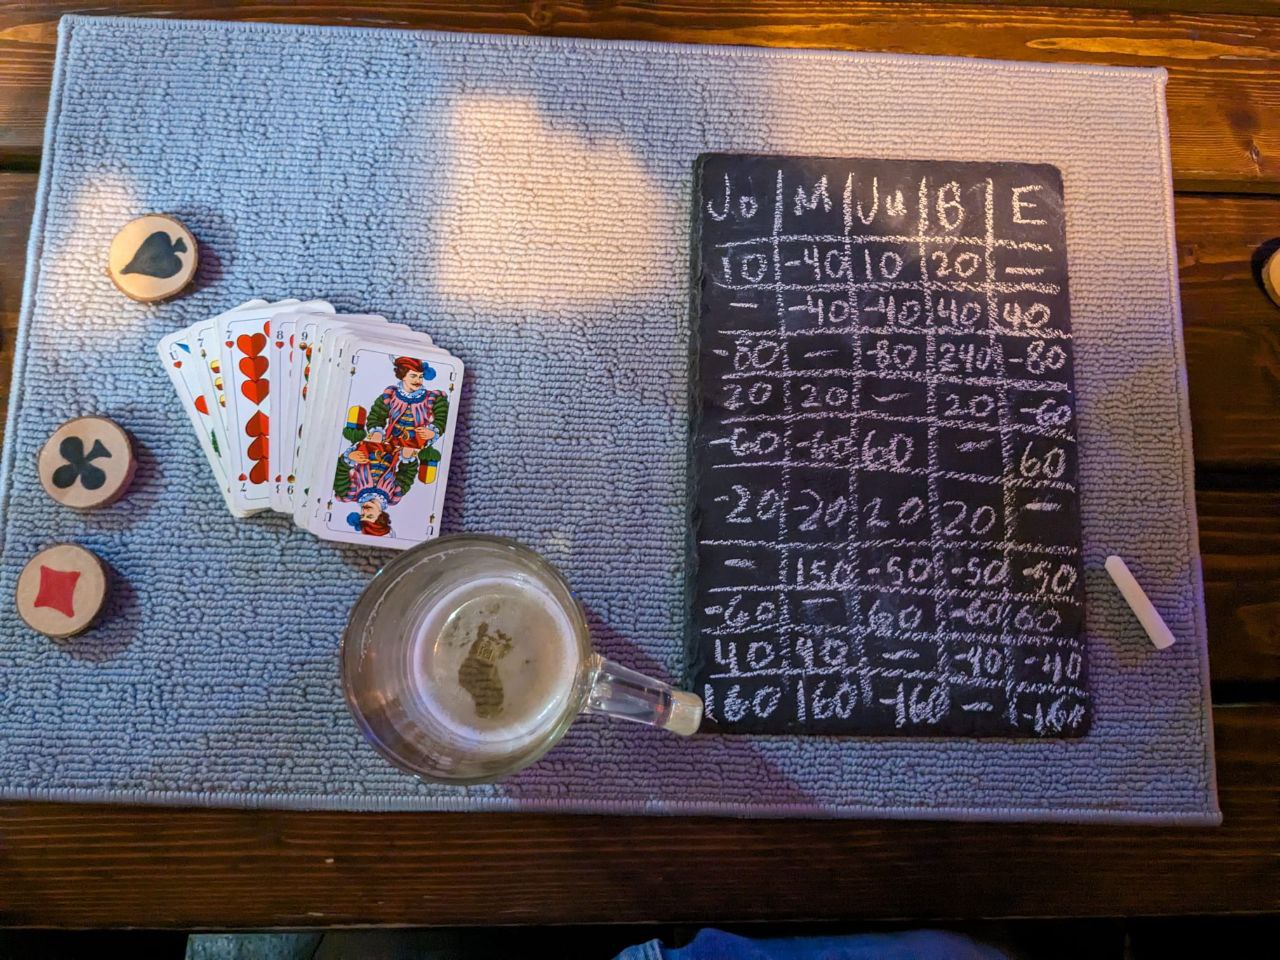 Jo M Ju B E
10 -40 10 20 —
— -40 -40 40 40
-80 — -80 240 -80
20 20 — 20 -60
-60 -60 60 — 60
-20 -20 20 20 —
— 150 -50 -50 -50
-60 — 60 -60 60
40 40 — -40 -40
160 160 -160 — -160
U 7 7 8 9 U
7 8 U